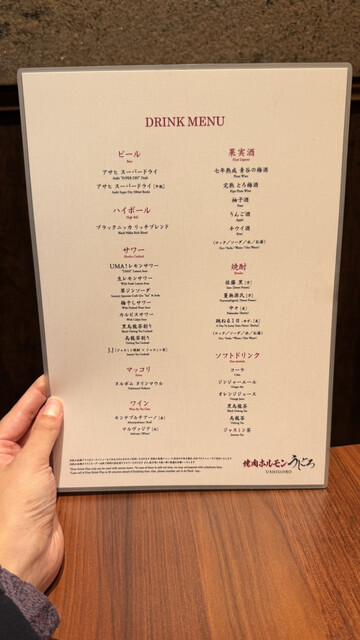 DRINK MENU
ビール
Beer
アサヒ スーパードライ
Asahi "SUPER DRY" Draft
アサヒ スーパードライ [中瓶]
ハイボール
High Ball
ブラックニッカ リッチブレンド
Black Nikka Rich Blend
サワー
Shochu Cocktail
UMA!レモンサワー
"UMA!" Lemon Sour
生レモンサワー
Fresh Lemon Sour
翠ジンソーダ
梅干しサワー
カルピスサワー
Calpis Sour
黒烏龍茶割り
Black Oolong Tea Cocktail
烏龍茶割り
Oolong Tea Cocktail
JJ [ジャスミン焼酎×ジャスミン茶]
Jasmine Tea Cocktail
マッコリ
ワイン
モンテプルチアーノ [赤]
マルヴァジア [白]
果実酒
Fruit Liqueur
七年熟成 杏谷の梅酒
Plum Wine
完熟 とろ梅酒
Ripe Plum Wine
柚子酒
Yuzu
りんご酒
Apple
キウイ酒
Kiwi
(ロック／ソーダ／水／お湯)
Ice / Soda / Water / Hot Water
焼酎
Shochu
佐藤 黒 [芋]
Sato (Sweet Potato)
中々 [麦]
Nakanaka (Barley)
(ロック／ソーダ／水／お湯)
Ice / Soda / Water / Hot Water
ソフトドリンク
Non-alcoholic
コーラ
Coke
ジンジャーエール
Ginger Ale
オレンジジュース
Orange Juice
黒烏龍茶
Black Oolong Tea
烏龍茶
Oolong Tea
ジャスミン茶
Jasmine Tea
焼肉ホルモン うしごろ
USHIGORO